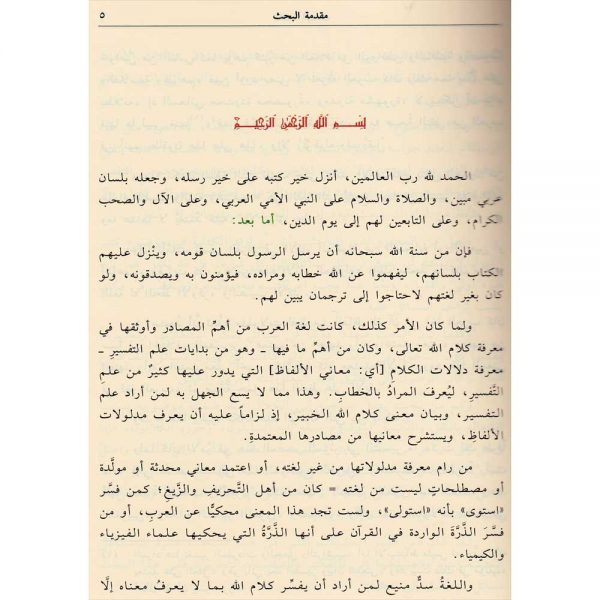 مقدمة البحث ٥
بِسْمِ اللَّهِ الرَّحْمَنِ الرَّحِيمِ
الحمد لله رب العالمين، أنزل خير كتبه على خير رسله، وجعله بلسان
عربي مبين، والصلاة والسلام على النبي الأمي العربي، وعلى الآل والصحب
الكرام، وعلى التابعين لهم إلى يوم الدين، أما بعد:
فإن من سنة الله سبحانه أن يرسل الرسول بلسان قومه، ويُنزل عليهم
الكتاب بلسانهم، ليفهموا عن الله خطابه ومراده، فيؤمنون به ويصدقونه، ولو
كان بغير لغتهم لاحتاجوا إلى ترجمان يبين لهم.
ولما كان الأمر كذلك، كانت لغة العرب من أهمِّ المصادر وأوثقها في
معرفة كلام الله تعالى، وكان من أهمِّ ما فيها ـ وهو من بدايات علم التفسيرِ ـ
معرفة دلالات الكلامِ [أي: معاني الألفاظ] التي يدور عليها كثيرٌ من علمِ
التَّفسيرِ، ليُعرفَ المرادُ بالخطابِ. وهذا مما لا يسع الجهل به لمن أراد علم
التفسير، وبيان معنى كلام الله الخبير، إذ لزاماً عليه أن يعرف مدلولات
الألفاظِ، ويستشرح معانيها من مصادرها المعتمدةِ.
من رام معرفة مدلولاتها من غير لغته، أو اعتمد معاني محدثة أو مولَّدة
أو مصطلحاتٍ ليست من لغته = كان من أهل التَّحريفِ والزَّيغِ؛ كمن فسَّر
«استوى» بأنه «استولى»، ولست تجد هذا المعنى محكيًّا عن العربِ، أو من
فسَّرَ الذَّرَّةَ الواردة في القرآن على أنها الذَّرَّةُ التي يحكيها علماء الفيزياء
والكيمياء.
واللغةُ سدٌّ منيع لمن أراد أن يفسِّر كلام الله بما لا يعرفُ معناه إلَّا